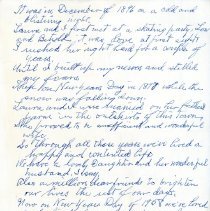 It was in December of 1896 on a cold and
blistery night
Laura and I first met at a skating party. Low
and Behold it was love at first sight
I rushed her right hard for a couple of
years
Until I built up my nerve and stilled
my fears
Then you New Years Day in 1898 while the
snow was falling down
Laura and I were married on her father's
farm in the outskirts of this town
She proved to be an efficient and wonderful
wife
So through all these years we've lived a
happy and contented life
We have a lovely daughter and her wonderful
husband
Also a
our lives the rest of our days
Now on New Years Day of 1958